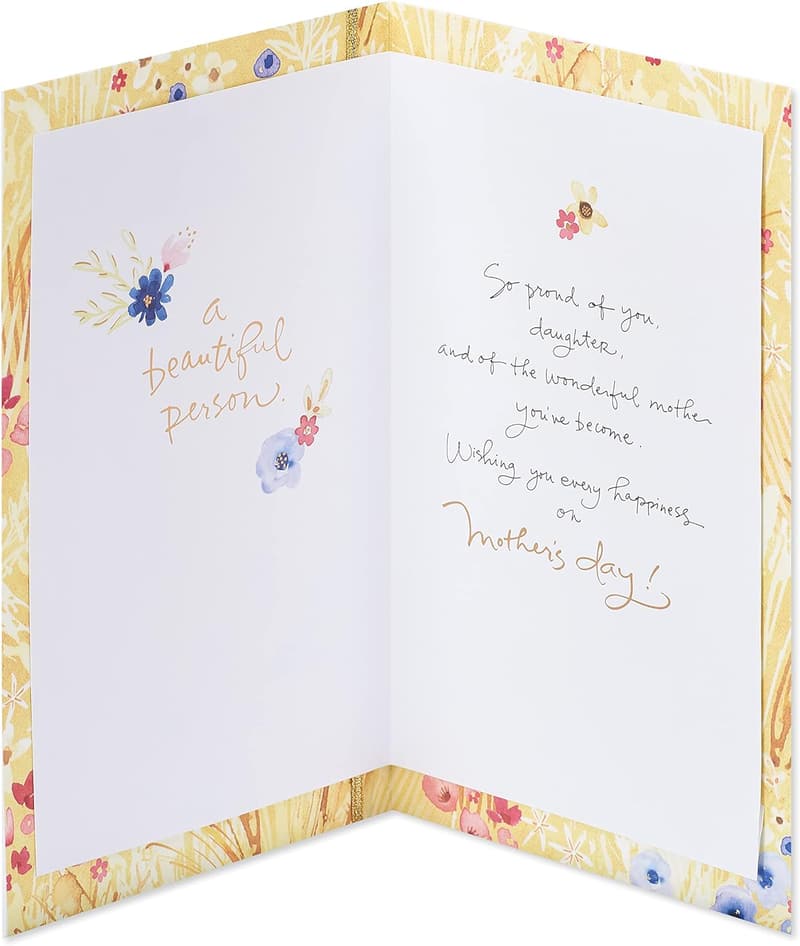 a
beautiful
person.
So proud of you,
daughter,
and of the wonderful mother
you've become.
Wishing you every happiness
on
Mother's day!